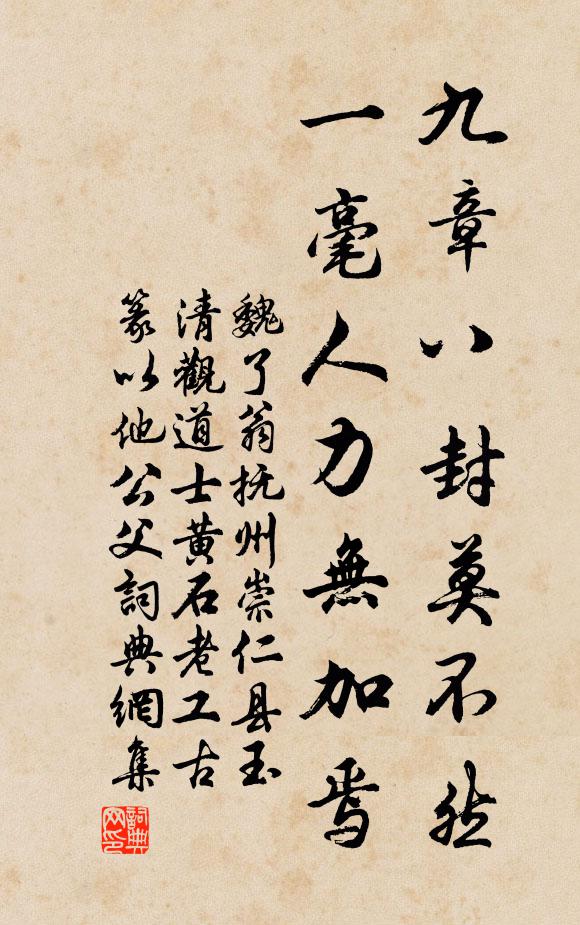 九章八封莫不然
一毫人力無加焉
魏了翁抚州崇仁县玉
清觀道士黄石老工古
篆以他公父詞典網集
詞典网印